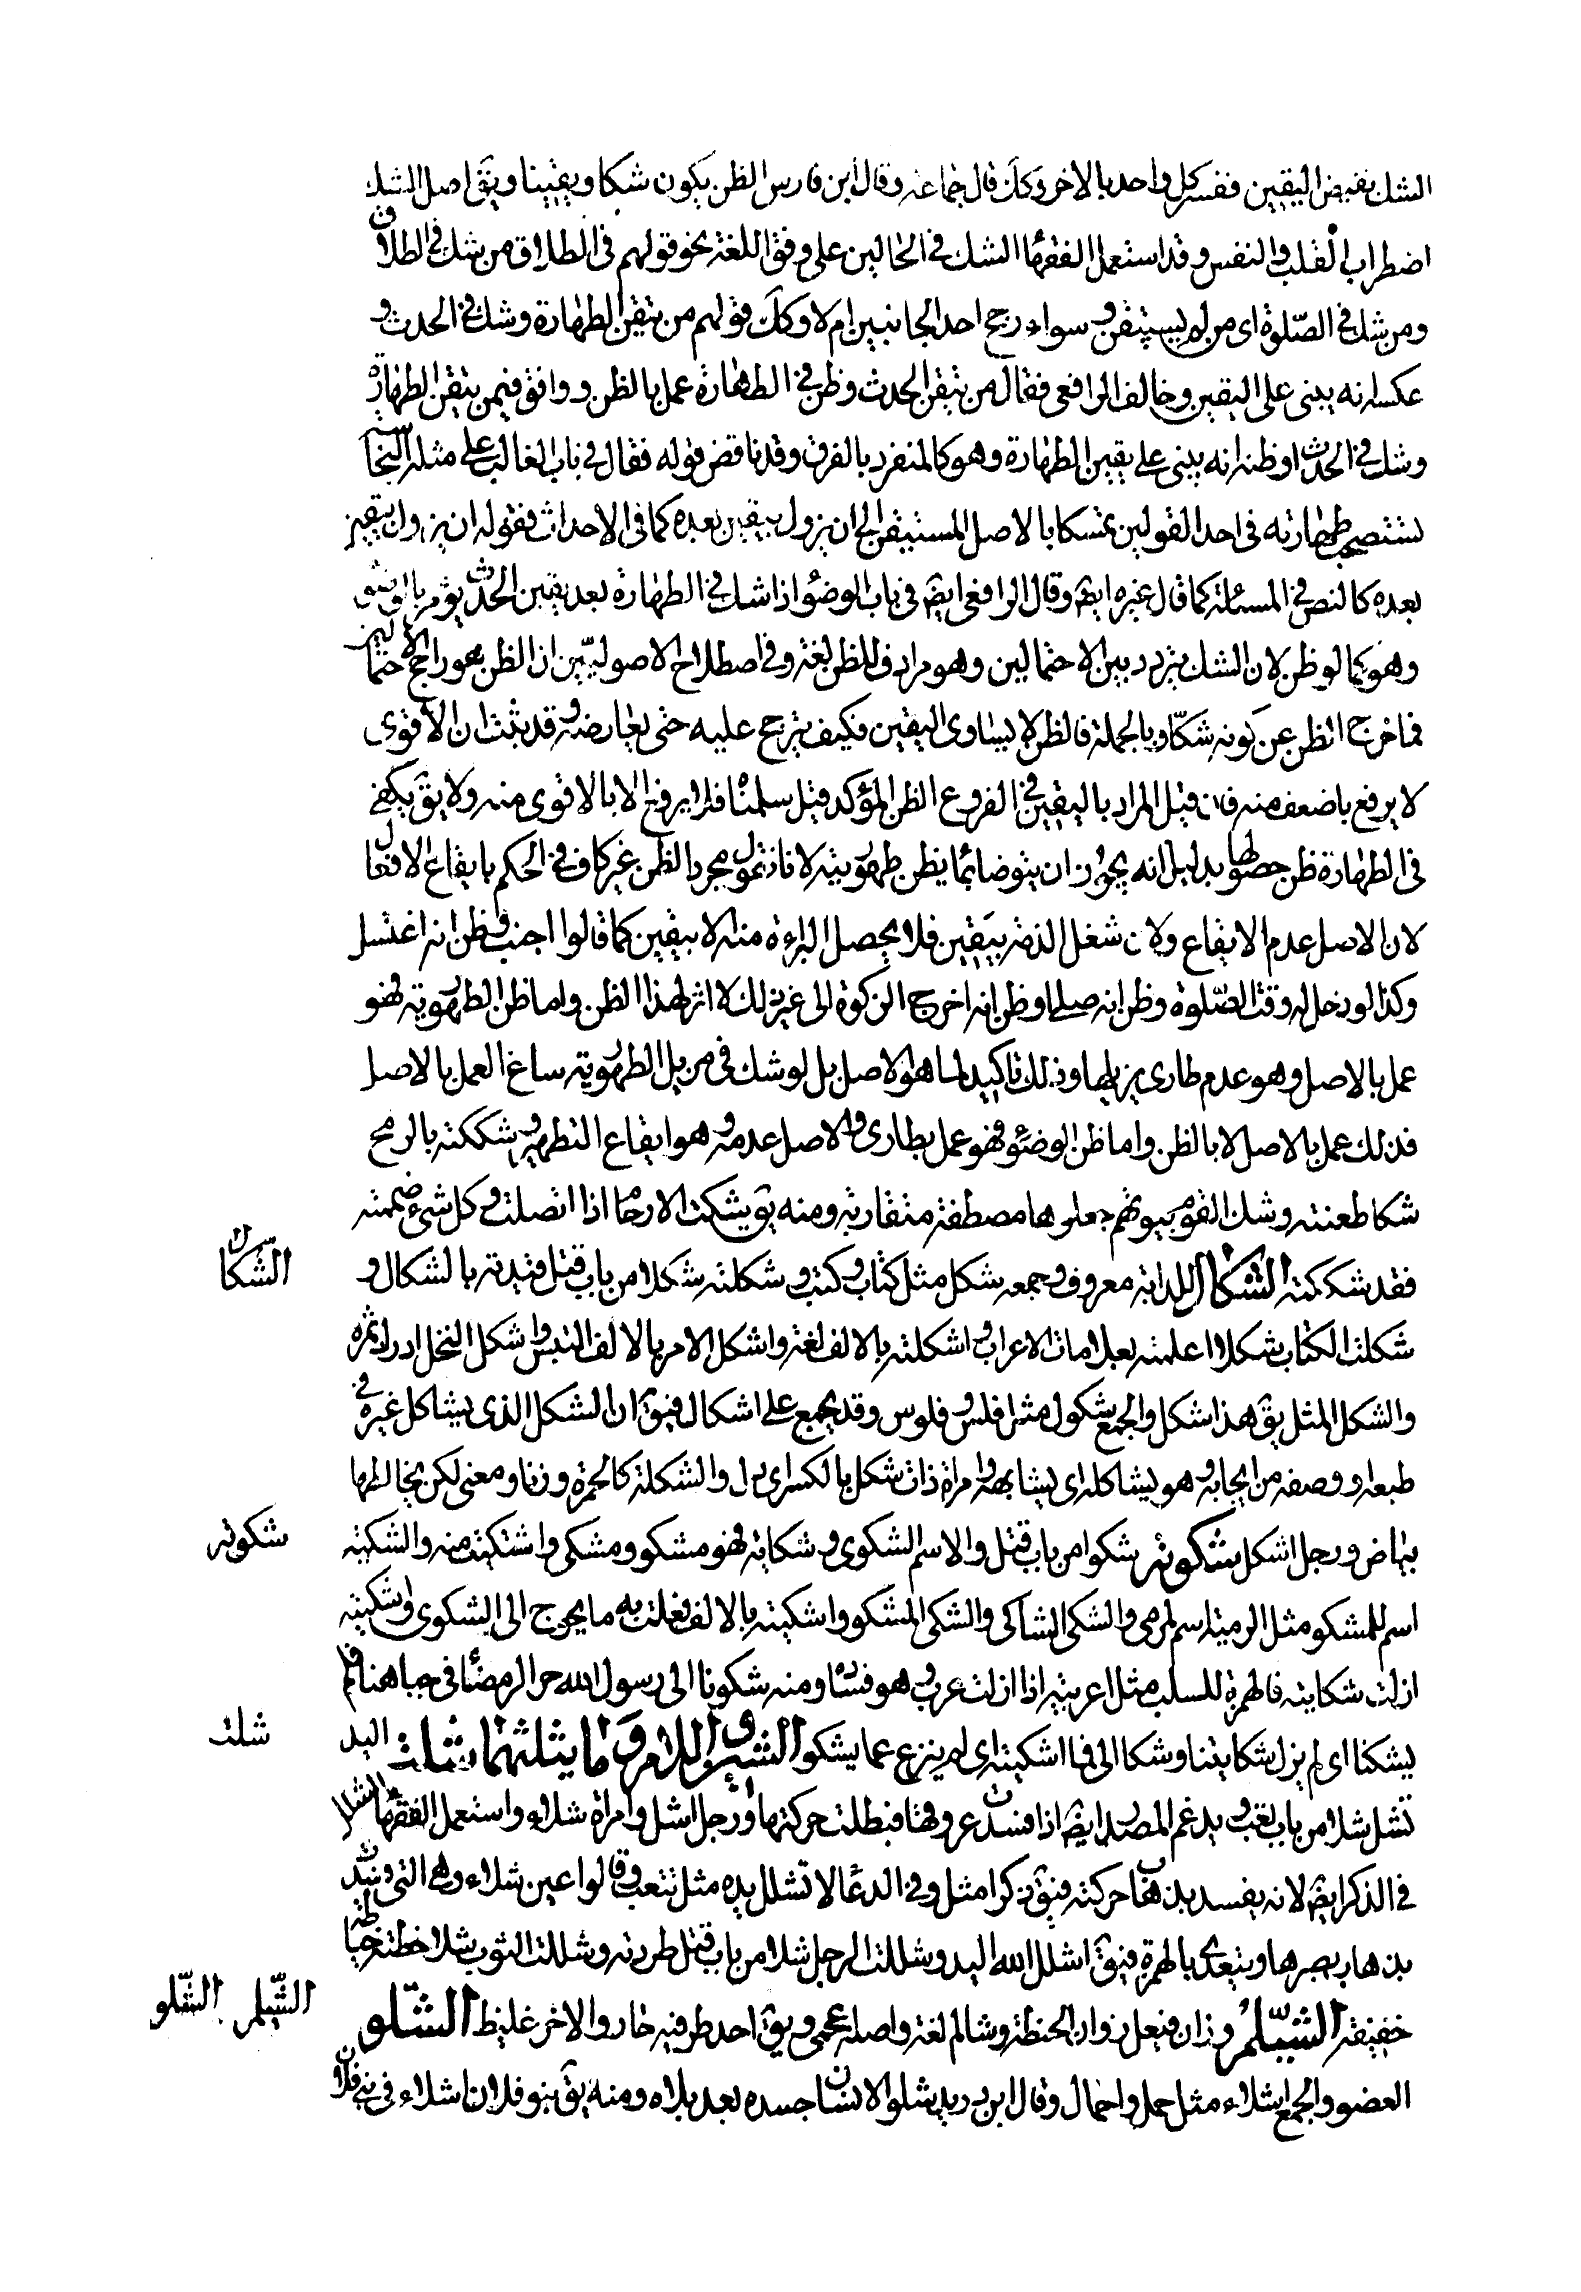 الشك نقيض اليقين ففسر كل واحد بالاخر وكك قال جماعة وقال ابن فارس الظن يكون شكا ويقينا ويق اصل الشك
اضطراب القلب والنفس وقد استعمل الفقهاء الشك في الحالين على وفق اللغة نحو قولهم في الطلاق من شك في الطلاق
ومن شك في الصّلوة اى من لم يستيقن و سواء رجح احد الجانبين ام لا وكك قولهم من تيقن الطهارة وشك في الحدث و
عكسه انه يبنى على اليقين وخالف الرافعى فقال من تيقن الحدث وظن في الطهارة عمل بالظن و وافق فيمن تيقن الطهارة
وشك في الحدث او ظنه انه يبنى على يقين الطهارة وهو كالمنفرد بالفرق وقد ناقض قوله فقال في باب الغالب على مثله النجاسة
تستصحب طهارته في احد القولين تمسكا بالاصل المستيقن الى ان يزول بيقين بعده كما في الاحداث فقوله ان يزول بيقين
بعده كالنص في المسئلة كما قال غيره ايضً وقال الرافعى ايضً في باب الوضوء اذا شك في الطهارة بعد يقين الحدث يؤمر بالوضوء
وهو كما لو ظن لان الشك تردد بين الاحتمالين وهو مرادف للظن لغة وفي اصطلاح الاصوليين ان الظن هو راجح الاحتمالين
فما خرج الظن عن كونه شكّا وبالجملة فالظن لا يساوى اليقين فكيف يترجح عليه حتى يعارضه و قد ثبت ان الاقوى
لا يرفع باضعف منه فان قيل المراد باليقين في الفروع الظن المؤكد قيل سلمناه فلا يرفع الا بالاقوى منه ولا يق يكفى
في الطهارة ظن حصولها بدليل انه يجوز ان يتوضا بما يظن طهوريته لانا نقول مجرد الظن غير كاف في الحكم بايقاع الافعال
لان الاصل عدم الايقاع ولان شغل الذمة بيقين فلا يحصل البراءة منه الا بيقين كما قالوا اجنب وظن انه اغتسل
وكذا لو دخل وقت الصّلوة وظن انه صلى او ظن انه اخرج الزكوة الى غير ذلك لا اثر لهذا الظن واما ظن الطهورية فهو
عمل بالاصل وهو عدم طارى يزيلها وذلك تاكيد لما هو الاصل بل لو شك في مزيل الطهورية ساغ العمل بالاصل
فذلك عمل بالاصل لا بالظن واما ظن الوضوء فهو عمل بطارى والاصل عدمه و هو ايقاع التطهير و شككته بالرمح
شكا طعنته وشك القوم بيوتهم جعلوها مصطفة متقاربة ومنه يق يشكت الارحام اذا اتصلت و كل شىء ضممته
فقد شككته الشكال للدابة معروف وجمعه شكل مثل كتاب وكتب و شكلته شكلا من باب قتل قيدته بالشكال و
شكلت الكتاب شكلا اعلمته بعلامات الاعراب و اشكلته بالالف لغة واشكل الامر بالالف التبس واشكل النخل ادرك ثمره
والشكل المثل يق هذا شكل والجمع شكول مثل فلس و فلوس وقد يجمع على اشكال فيق ان الشكل الذى يشاكل غيره في
طبعه او وصفه من انحائه و هو يشاكله اى يشابهه و امراة ذات شكل بالكسر اى دل والشكلة كالحمرة وزنا ومعنى لكن يخالطها
بياض ورجل اشكل شكوته شكوا من باب قتل والاسم الشكوى و شكاية فهو مشكو ومشكى واشتكيت منه والشكية
اسم للمشكو مثل الرمية اسم لمرمى والشكى الشاكى والشكى المشكو واشكيته بالالف فعلت به ما يحوج الى الشكوى واشكيته
ازلت شكايته فالهمزة للسلب مثل اعربته اذا ازلت عربه و هو فساده ومنه شكونا الى رسول الله حر الرمضاء في جباهنا فلم
يشكنا اى لم يزل شكايتنا وشكا الى فما اشكيته اى لم ينزع عما يشكو الشين واللام وما يثلثهما شلت اليد
تشل شللا من باب تعب و يدغم المصدر ايضً اذا فسدت عروقها فبطلت حركتها ورجل اشل وامراة شلاء واستعمل الفقهاء الشلل
في الذكر ايضً لانه يفسد بذهاب حركته فيق ذكر اشل وفي الدعاء لا تشلل يده مثل تتعب وقالوا عين شلاء وهى التى فسدت
بذهاب بصرها ويتعدى بالهمزة فيق اشل الله اليد وشللت الرجل شلا من باب قتل طردته وشللت الثوب شلا خطته خياطة
خفيفة الشيلم وزان فيعل زوان الحنطة وشالم لغة واصله عجمى و يق احد طرفيه حار والاخر غليظ الشلو
العضو والجمع اشلاء مثل حمل واحمال وقال ابن دريد شلو الانسان جسده بعد بلاه ومنه يق بنو فلان اشلاء في بنى فلان
الشكال
شكوته
شلت
الشيلم الشلو